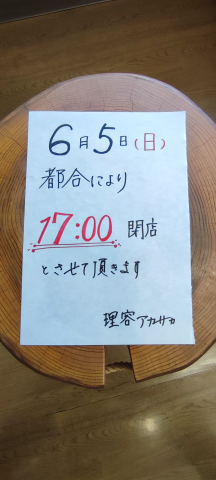 6月5日(日)
都合により
17:00 閉店
とさせて頂きます
理容アカサカ